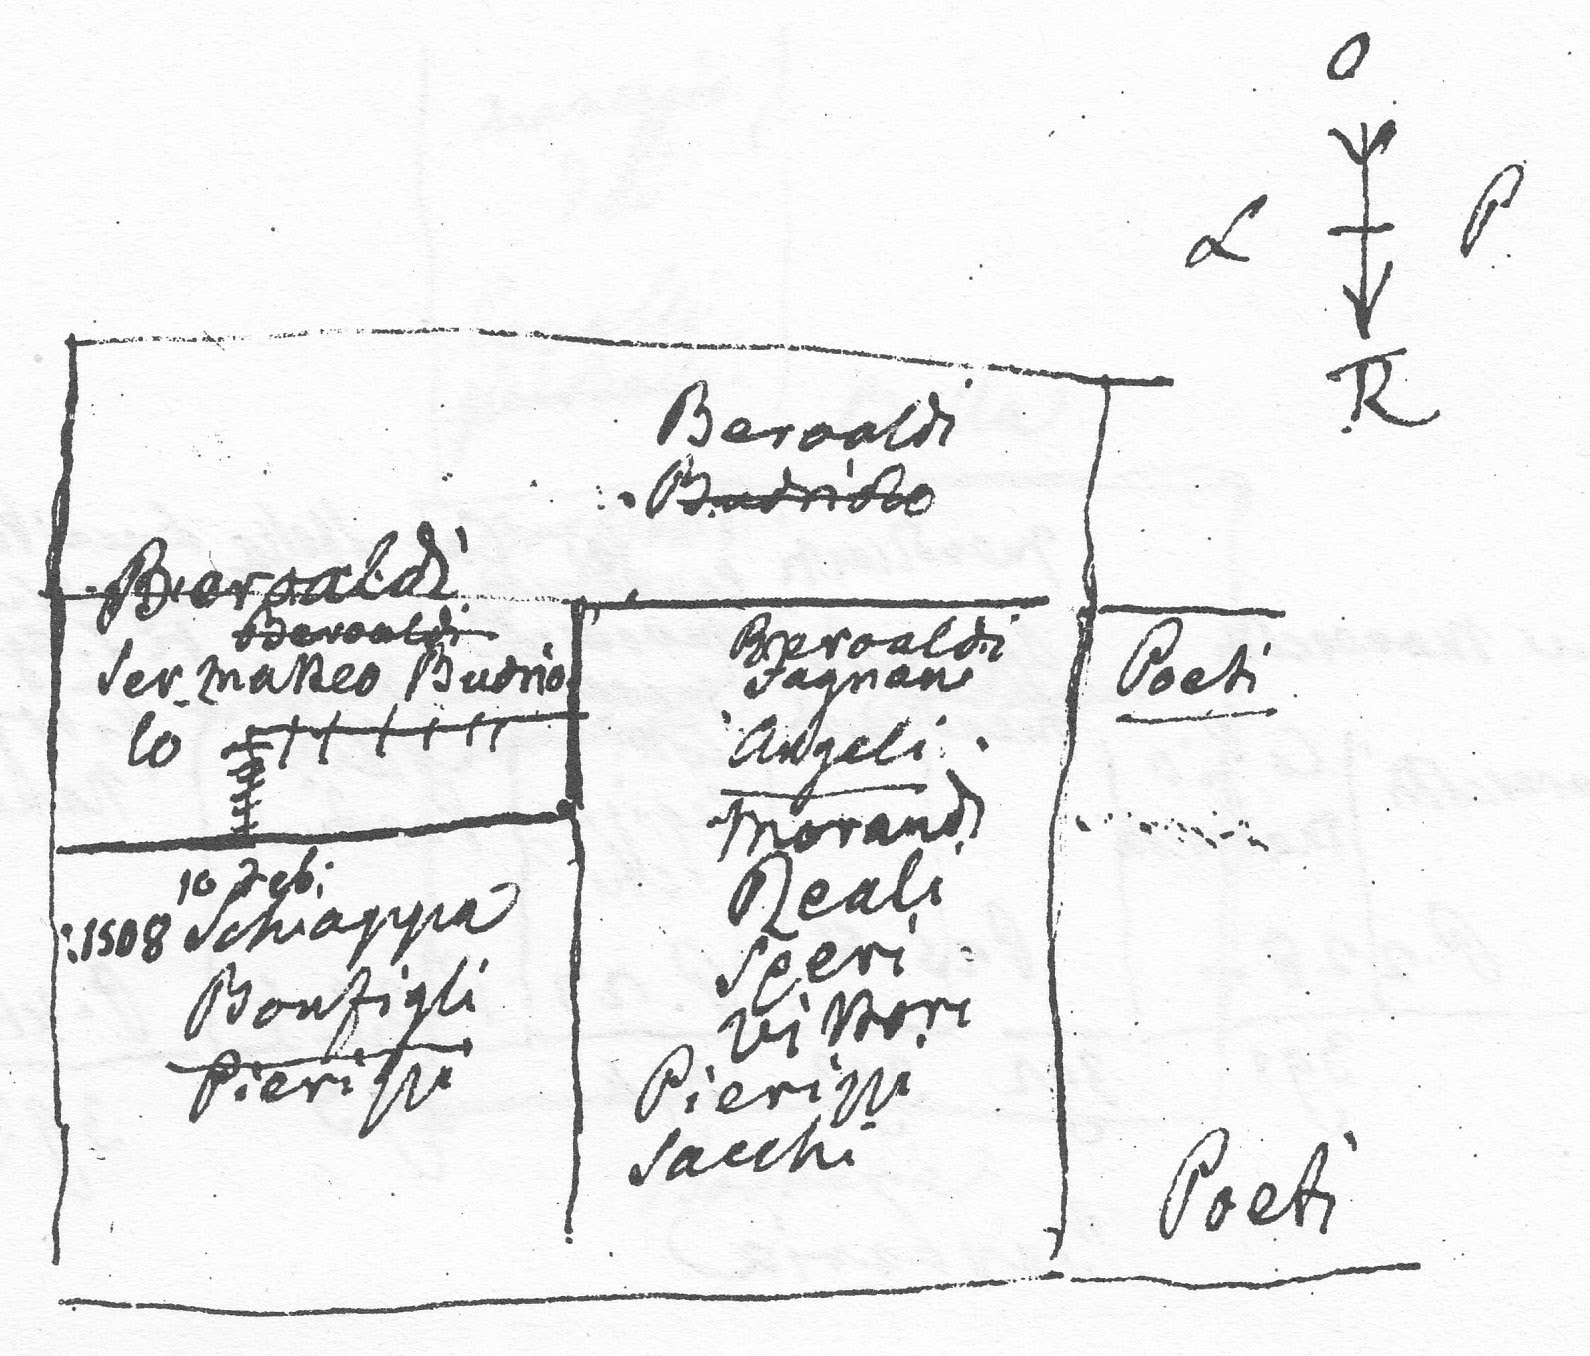 O
L
P
R
Beroaldi
Budriolo
Beroaldi
Beroaldi
Ser Matteo Budrio
lo
10 Feb:
1508 Schiappa
Bonfigli
Pierizzi
Beroaldi
Fagnani
Angeli
Morandi
Reali
Speri
Vittori
Pierizzi
Sacchi
Poeti
Poeti